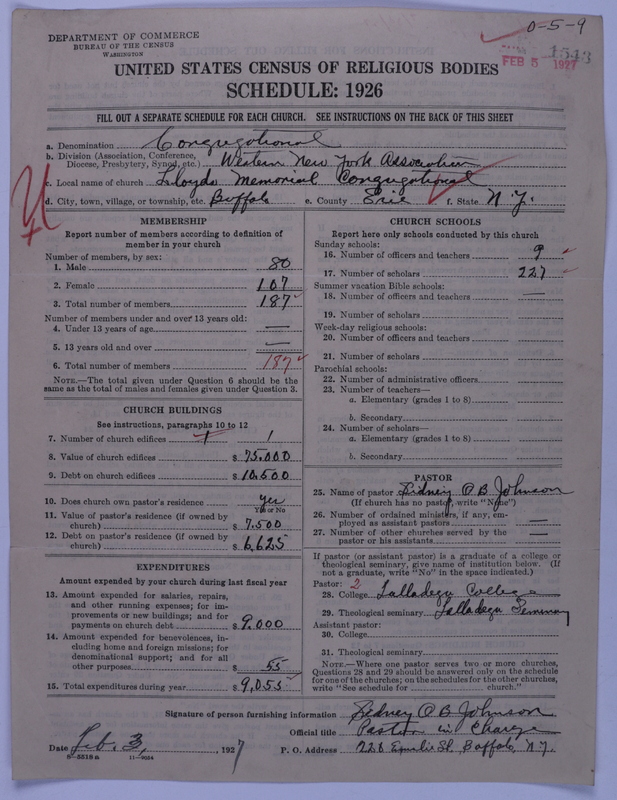 DEPARTMENT OF COMMERCE
BUREAU OF THE CENSUS
WASHINGTON
0-5-9
FEB 5 1927
1543
UNITED STATES CENSUS OF RELIGIOUS BODIES
SCHEDULE: 1926
FILL OUT A SEPARATE SCHEDULE FOR EACH CHURCH. SEE INSTRUCTIONS ON THE BACK OF THIS SHEET
a. Denomination Congregational
b. Division (Association, Conference, Diocese, Presbytery, Synod, etc.) Western New York Association
c. Local name of church Lloyds Memorial Congregational
d. City, town, village, or township, etc. Buffalo e. County Erie f. State N.Y.
MEMBERSHIP
Report number of members according to definition of
member in your church
Number of members, by sex:
1. Male 80
2. Female 107
3. Total number of members 187
Number of members under and over 13 years old:
4. Under 13 years of age —
5. 13 years old and over —
6. Total number of members 187
NOTE.—The total given under Question 6 should be the
same as the total of males and females given under Question 3.
CHURCH BUILDINGS
See instructions, paragraphs 10 to 12
7. Number of church edifices 1 1
8. Value of church edifices $ 75.000
9. Debt on church edifices $ 10.500
10. Does church own pastor's residence yes
Yes or No
11. Value of pastor's residence (if owned by
church) $ 7.500
12. Debt on pastor's residence (if owned by
church) $ 6,625
EXPENDITURES
Amount expended by your church during last fiscal year
13. Amount expended for salaries, repairs,
and other running expenses; for im-
provements or new buildings; and for
payments on church debt $ 9.000
14. Amount expended for benevolences, in-
cluding home and foreign missions; for
denominational support; and for all
other purposes $ 55
15. Total expenditures during year $ 9,055
CHURCH SCHOOLS
Report here only schools conducted by this church
Sunday schools:
16. Number of officers and teachers 9
17. Number of scholars 227
Summer vacation Bible schools:
18. Number of officers and teachers —
19. Number of scholars
Week-day religious schools:
20. Number of officers and teachers
21. Number of scholars
Parochial schools:
22. Number of administrative officers
23. Number of teachers—
a. Elementary (grades 1 to 8)
b. Secondary
24. Number of scholars—
a. Elementary (grades 1 to 8)
b. Secondary
PASTOR
25. Name of pastor Sidney O B Johnson
(If church has no pastor, write "None")
26. Number of ordained ministers, if any, em-
ployed as assistant pastors —
27. Number of other churches served by the
pastor or his assistants —
If pastor (or assistant pastor) is a graduate of a college or
theological seminary, give name of institution below. (If
not a graduate, write "No" in the space indicated.)
Pastor: 2
28. College Talladega College
29. Theological seminary Talladega Seminary
Assistant pastor:
30. College
31. Theological seminary
NOTE.—Where one pastor serves two or more churches,
Questions 28 and 29 should be answered only on the schedule
for one of the churches; on the schedules for the other churches,
write "See schedule for church."
Signature of person furnishing information Sidney O B Johnson
Official title Pastor in Charge
Date Feb. 3, 1927 P. O. Address 228 Emslie St, Buffalo, N.Y.
8-5518a 11-9054